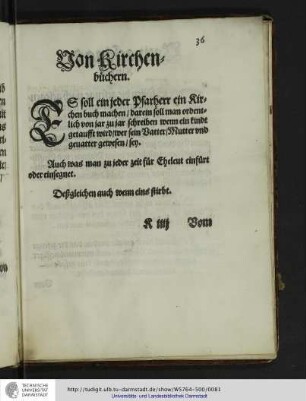 36
Von Kirchen-
büchern.
ES soll ein jeder Pfarherr ein Kir-
chen buch machen / darein soll man ordent-
lich von jar zu jar schreiben wenn ein kindt
getaufft wird / wer sein Vatter / Mutter vnd
geuatter gewesen / sey.
Auch was man zu jeder zeit für Eheleut einfürt
oder einsegnet.
Deßgleichen auch wenn eins stirbt.
K iiij Vom
TECHNISCHE
UNIVERSITÄT
DARMSTADT
http://tudigit.ulb.tu-darmstadt.de/show/W5764-500/0083
Universitäts- und Landesbibliothek Darmstadt